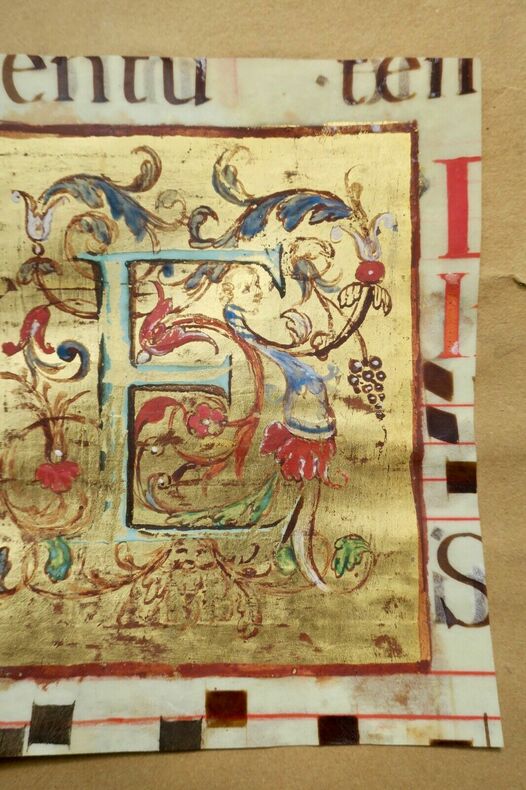 entu ·ten
E
S